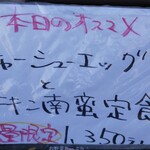 本日のオススメ
チャーシューエッグ
と
チキン南蛮定食
数量限定 1,350ラ